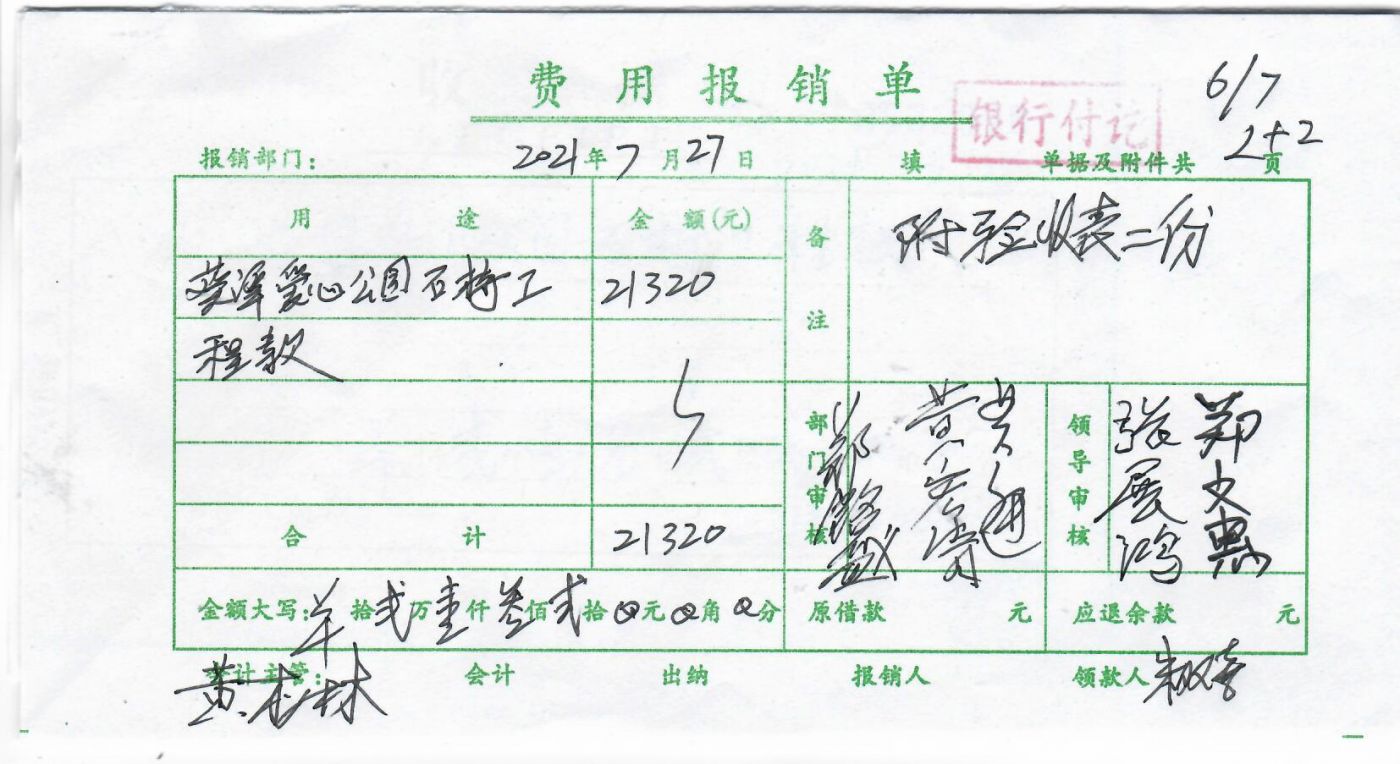 费用报销单
银行付讫
6/7
2+2
报销部门: 2021年7月27日 填 单据及附件共 页
用途 金额(元) 备注 附验收表二份
爱心公园石椅工 21320
程款
合计 21320
部门审核
领导审核 张展鸿 郑文惠
金额大写: 拾贰万壹仟叁佰贰拾0元0角0分 原借款 元 应退余款 元
会计主管: 黄 林 会计 出纳 报销人 领款人